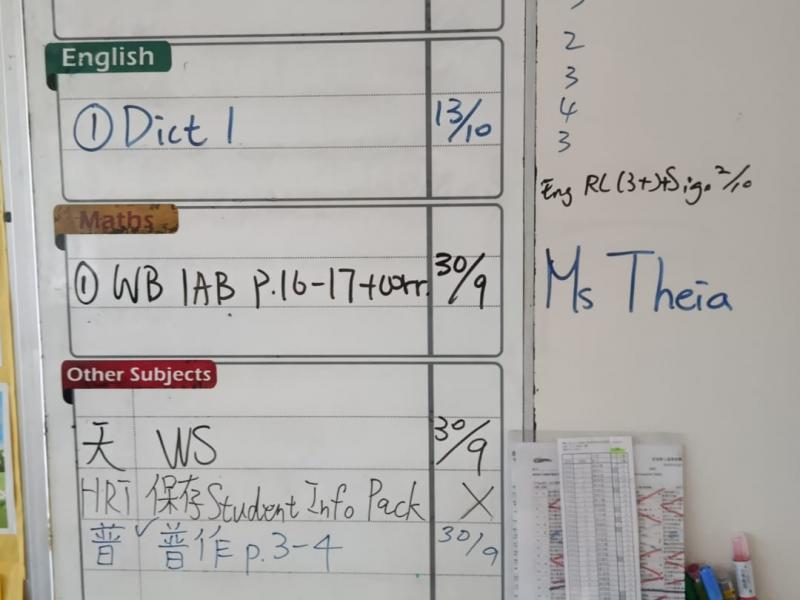 English
① Dict 1 13/10
Maths
① WB 1AB P.16-17+corr. 30/9
Other Subjects
天 WS 30/9
HRT 保存 Student Info Pack X
普 ✓ 普作 p.3-4 30/9
2
3
4
3
Eng RC (3+)+Sign 2/10
Ms Theia